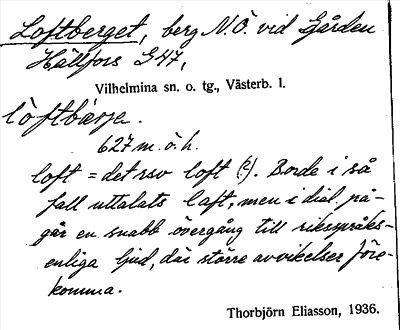 Loftberget, berg N.Ö. vid Gården
Hällfors G47,
Vilhelmina sn. o. tg., Västerb. l.
627 m. ö. h.
loft = det rsv loft (?). Borde i så
fall uttalets laft, men i dial. på-
går en snabb övergång till riksspråks-
enliga ljud, där större avvikelser före-
komma.
Thorbjörn Eliasson, 1936.